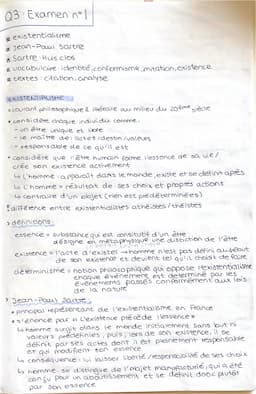 Q3: Examen n°1
existentialisme
Jean-Paul Sartre
Sartre: Huis clos
vocabulaire: identité, conformisme, imitation, existence
textes: citation, analyse
EXISTENTIALISME
courant philosophique & littéraire au milieu du 20ème siècle
considère chaque individu comme:
- un être unique et libre
- le maître de: acts et destin/valeurs
- responsable de ce qu'il est
considère que l'être humain forme l'essence de sa vie/
crée son existence activement
↳ L'homme: apparaît dans le monde, existe et se définit après
↳ L'homme = résultat de ses choix et propres actions
↳ contraire d'un objet (rien est prédéterminées)
! différence entre existentialistes athéistes/théistes
> définitions:
essence = substance qui est constitutif d'un être
désigne en métaphysique une distinction de l'être
existence = l'acte d'exister → homme n'est pas défini au début
de son existence et devient tel qu'il choisit de faire
déterminisme = notion philosophique qui oppose l'existentialisme
chaque événement est déterminé par les
événements passés conformément aux lois
de la nature
> Jean-Paul Sartre:
principal représentant de l'existentialisme en France
par « l'existence précède l'essence »
↳ homme surgit dans le monde initialement sans but ni
valeurs prédéfinies, puis, lors de son existence, il se
définit par ses actes dont il est pleinement responsable
et qui modifient son essence
↳ conséquence: lui laisser liberté/responsabilité de ses choix
↳ homme se distingue de l'objet manufacturé, qui a été
conçu pour un aboutissement et se définit donc plutôt
par son essence